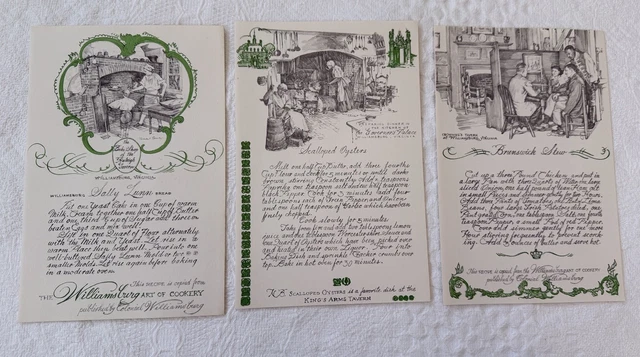 Bake Shop
of the
Raleigh
Tavern
WILLIAMSBURG, VIRGINIA
WILLIAMSBURG Sally Lunn BREAD
Put one Yeast Cake in one Cup of warm
Milk. Cream together one half Cup of Butter
and one third Cup of Sugar, add three
beaten Eggs and mix well.
Sift in one Quart of Flour alternately
with the Milk and Yeast. Let rise in
warm Place then beat well. Pour into one
well buttered Sally Lunn Mold or two
smaller Molds. Let rise again before baking
in a moderate oven.
This recipe is copied from
THE Williamsburg ART OF COOKERY
published by Colonial Williamsburg
THE KITCHEN OF
THE Governor's Palace
WILLIAMSBURG, VIRGINIA
Scalloped Oysters
Melt one half cup Butter, add three fourths
Cup Flour and cook for 5 minutes or until
brown, stirring constantly. Add 1 teaspoon
Paprika, one teaspoon salt and one half teaspoon
black Pepper. Cook for 3 minutes, add four
tablespoons each of Green Pepper and Onion
and one half teaspoon of Garlic which have been
finely chopped.
Cook slowly for 5 minutes.
Take from fire and add two tablespoons lemon
juice, one tablespoon Worcestershire Sauce and
one Quart of Oysters which have been picked over
and heated in their own Liquor. Pour into
Baking Dish and sprinkle Cracker crumbs over
top. Bake in hot oven for 30 minutes.
N.B. SCALLOPED OYSTERS is a favorite dish at the
KING'S ARMS TAVERN
WILLIAMSBURG, VIRGINIA
Brunswick Stew
Cut up a three Pound Chicken and put in
a large Pan with three Quarts of Water, one
sliced Onion, one half pound of lean Ham cut
in small Pieces and simmer gently for two Hours.
Add three Pints of Tomatoes, one Pint Lima
Beans, four large Irish Potatoes diced, one
Pint grated Corn, one tablespoon Salt, one fourth
teaspoon Pepper, a small Pod of red Pepper.
Cover and simmer gently for one more
Hour stirring frequently to prevent scorch-
ing. Add 3 ounces of butter and serve hot.
THIS RECIPE is copied from the Williamsburg ART OF COOKERY
published by Colonial Williamsburg